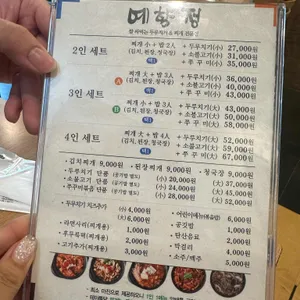 예향정
2인 세트
찌개 小 + 밥 2人
(김치, 된장, 청국장)
택1
+ 두루치기(小) 27,000원
+ 소불고기(小) 31,000원
+ 쭈 꾸 미(小) 35,000원
3인 세트
A
찌개 大 + 밥 3人
(김치, 된장, 청국장)
+ 두루치기(小) 36,000원
+ 소불고기(小) 40,000원
+ 쭈 꾸 미(小) 43,000원
B
찌개 小 + 밥 3人
(김치, 된장, 청국장)
택1
+ 두루치기(大) 43,000원
+ 소불고기(大) 50,000원
+ 쭈 꾸 미(大) 58,000원
4인 세트
찌개 大 + 밥 4人
(김치, 된장, 청국장)
택1
+ 두루치기(大) 52,000원
+ 소불고기(大) 60,000원
+ 쭈 꾸 미(大) 67,000원
· 김치찌개 9,000원 · 된장찌개 9,000원 · 청국장 9,000원
· 두루치기 단품 (공기밥 별도) (小) 20,000원 (大) 37,000원
· 소불고기 단품 (공기밥 별도) (小) 24,000원 (大) 45,000원
· 쭈꾸미볶음 단품 (공기밥 별도) (小) 28,000원 (大) 52,000원
· 두루치기 치즈추가 (小) 4,000원
(大) 6,000원
· 라면사리(찌개용) 1,000원
· 후무룩떡(찌개용) 2,000원
· 고기추가(찌개용) 3,000원
6,000원
· 공깃밥 1,000원
· 탄산음료 2,000원
· 막걸리 4,000원
· 소주/맥주 5,000원